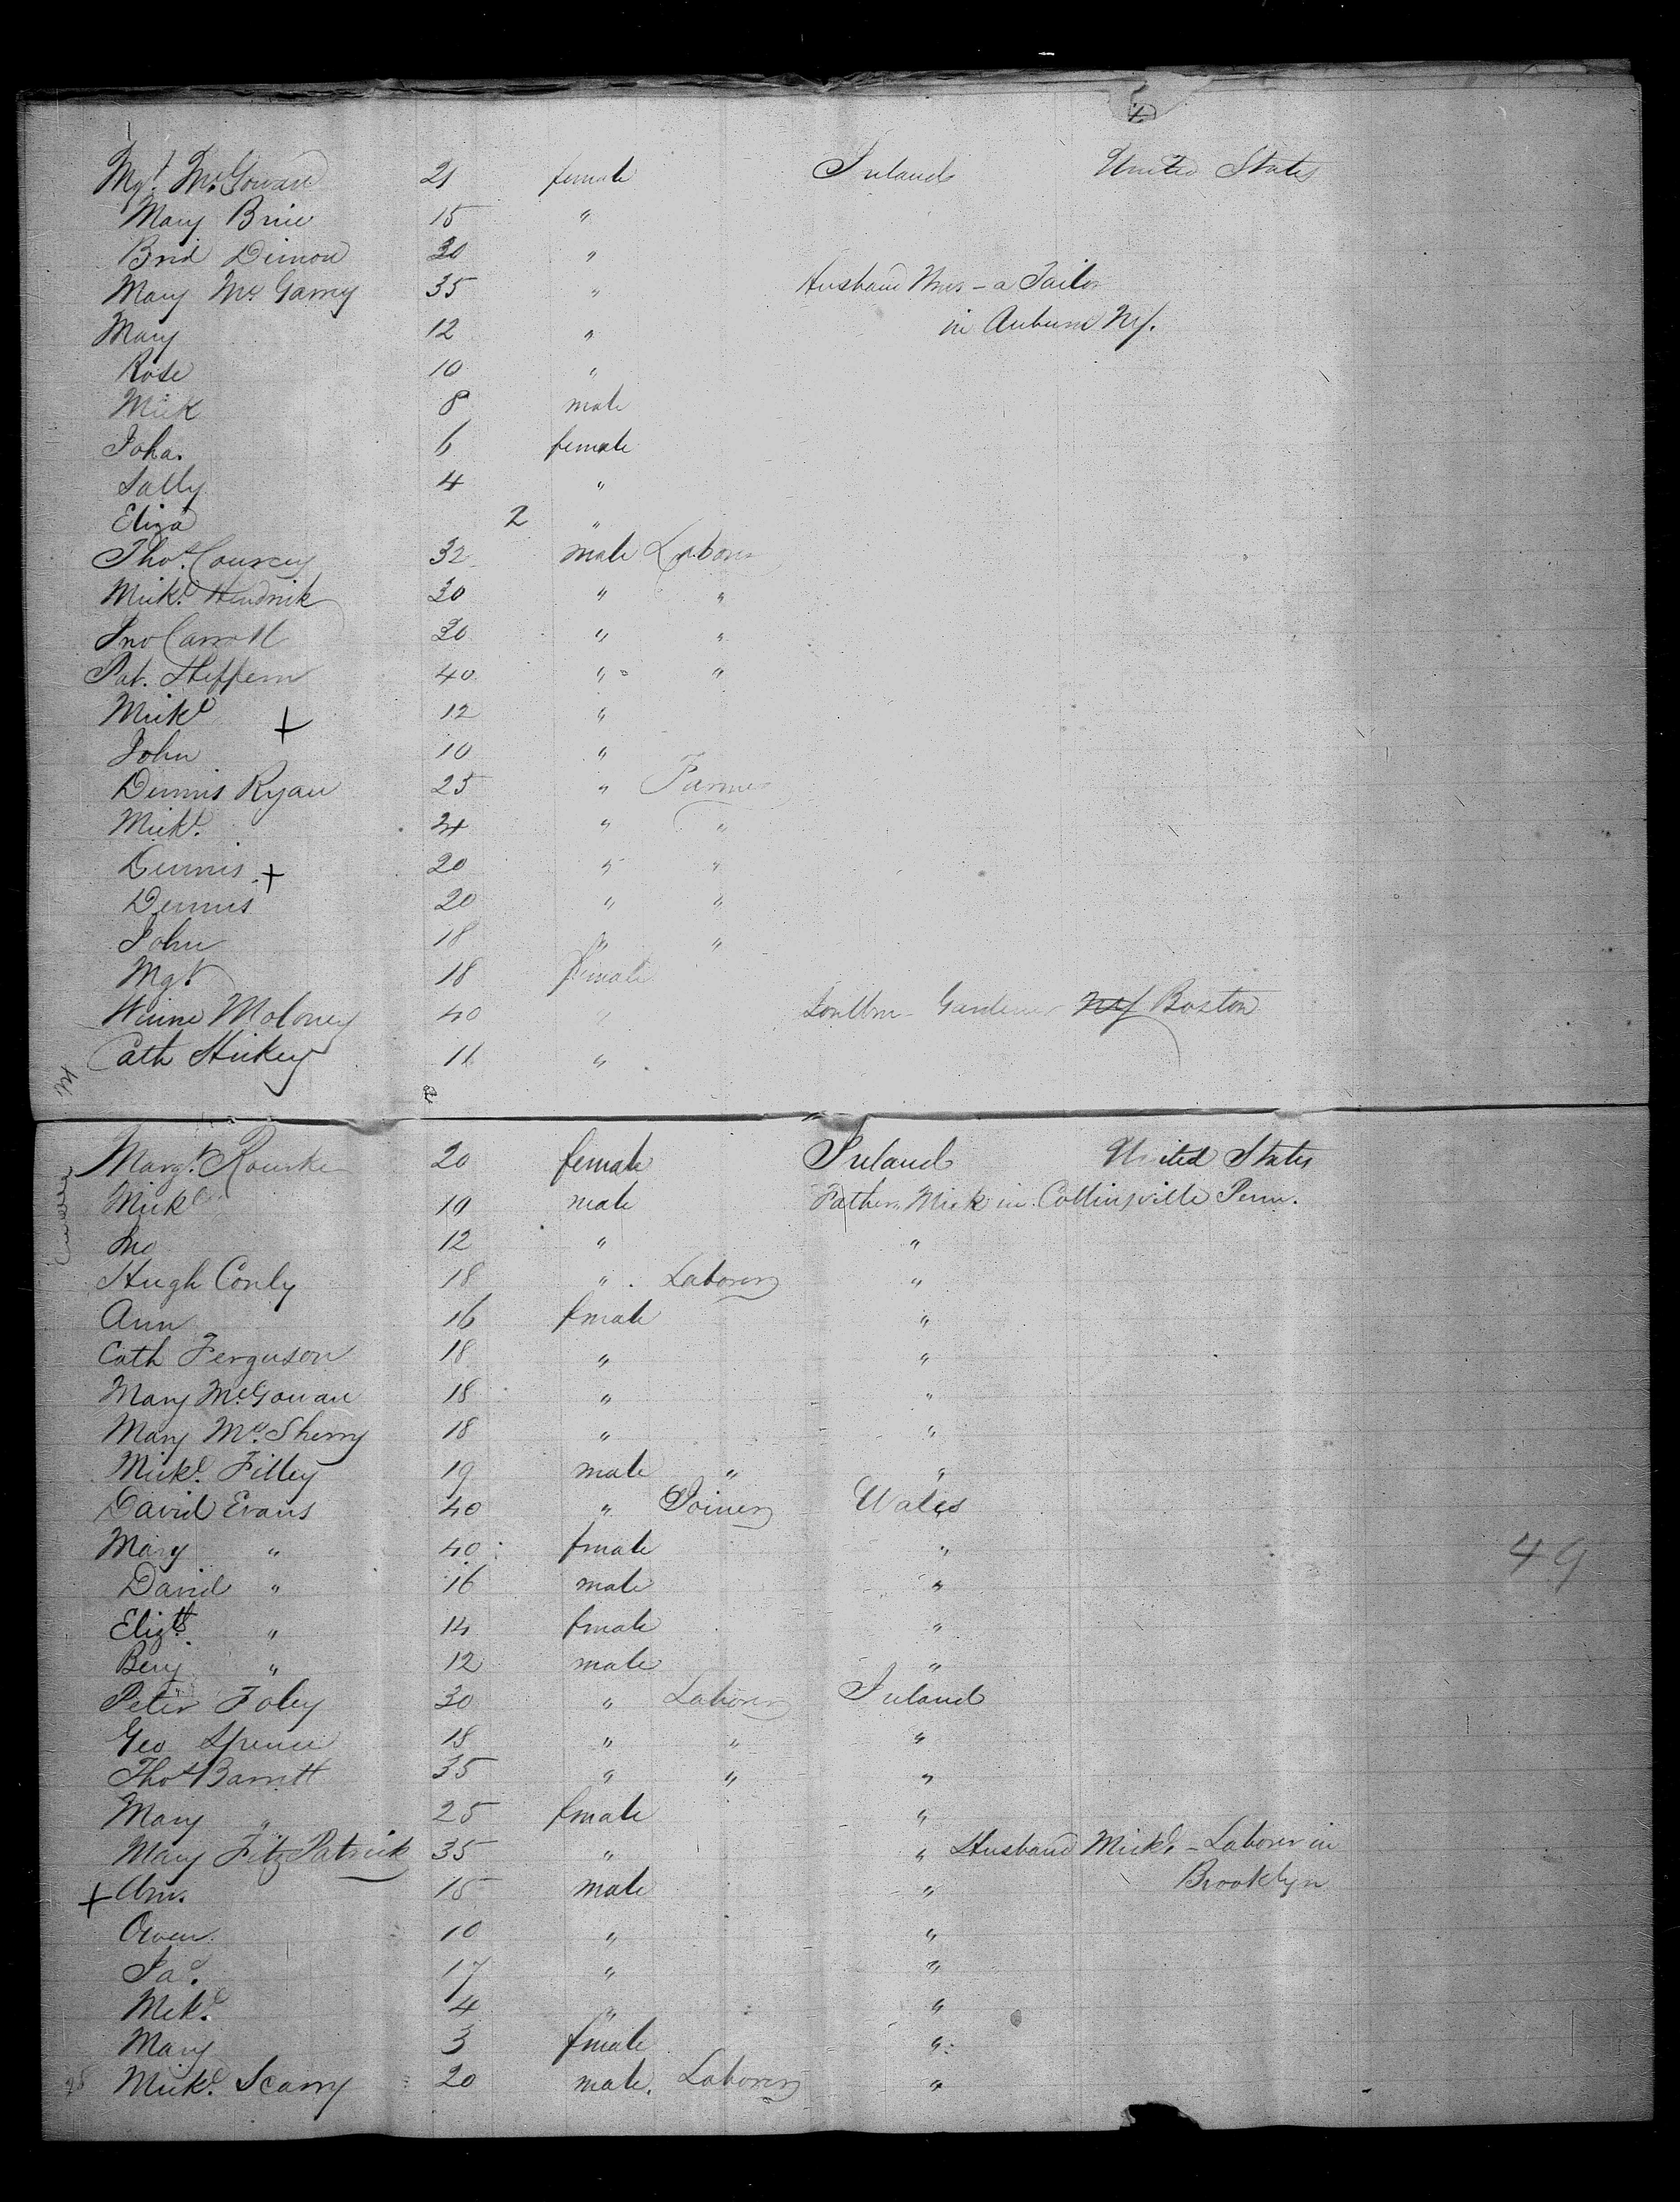 Mgt. McGowan 21 female Ireland United States
Mary Brice 15 "
Brid Dimon 30 "
Mary Mc Garry 35 " Husband - a Tailor
Mary 12 " in Auburn NY.
Rose 10 "
Mick 8 male
Joha. 6 female
Sally 4 "
Eliza 2 "
Thos. Courcey 32 male Laborer
Mickl. Hendrick 30 " "
Jno Carroll 30 " "
Pat. Heffern 40 " "
Mickl 12 "
+
John 10 "
Dennis Ryan 25 " Farmer
Mickl. 24 " "
Dennis + 20 " "
Dennis 20 " "
John 18 " "
Mgt 18 female
Winne Moloney 40 " Son Wm - Gardener NY Boston
Cath Hickey 11 "
Margt. Rourke 20 female Ireland United States
Mickl 19 male Father Mick in Collinsville Penn.
Jno 12 " "
Hugh Conly 18 " Laborer "
Ann 16 fmale "
Cath Ferguson 18 " "
Mary McGowan 18 " "
Mary Mc Sherry 18 " "
Mickl. Filley 19 male " "
David Evans 40 " Joiner Wales
Mary " 40 fmale "
49
David " 16 male "
Elizth " 14 fmale "
Benj " 12 male "
Peter Foley 30 " Laborer Ireland
Geo Spence 18 " " "
Thos Barrett 35 " " "
Mary " 25 fmale "
Mary FitzPatrick 35 " " Husband Mickl. - Laborer in
+ Wm. 15 male " Brooklyn
Owen 10 " "
Jas. 17 " "
Mickl. 4 " "
Mary 3 fmale "
Mickl. Scarry 20 male. Laborer "